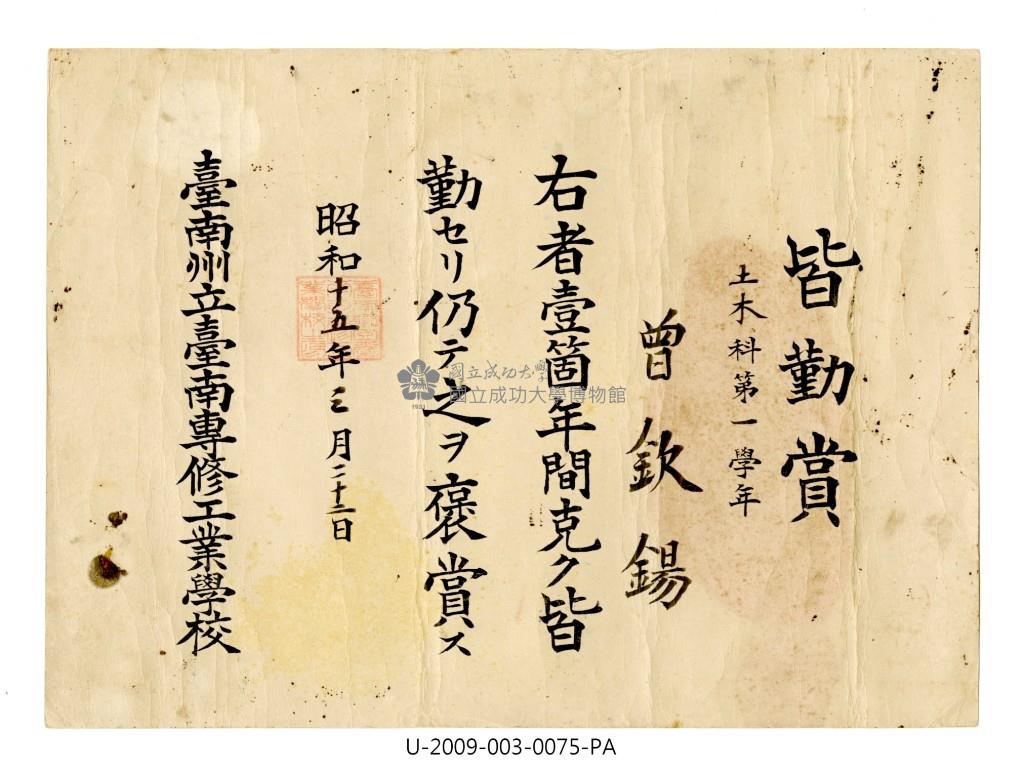 皆勤賞
土木科第一學年
曾欽錫
右者壹箇年間克ク皆
勤セリ仍テ之ヲ褒賞ス
昭和十五年三月二十三日
臺南州立臺南專修工業學校
國立成功大學
國立成功大學博物館
1931
U-2009-003-0075-PA